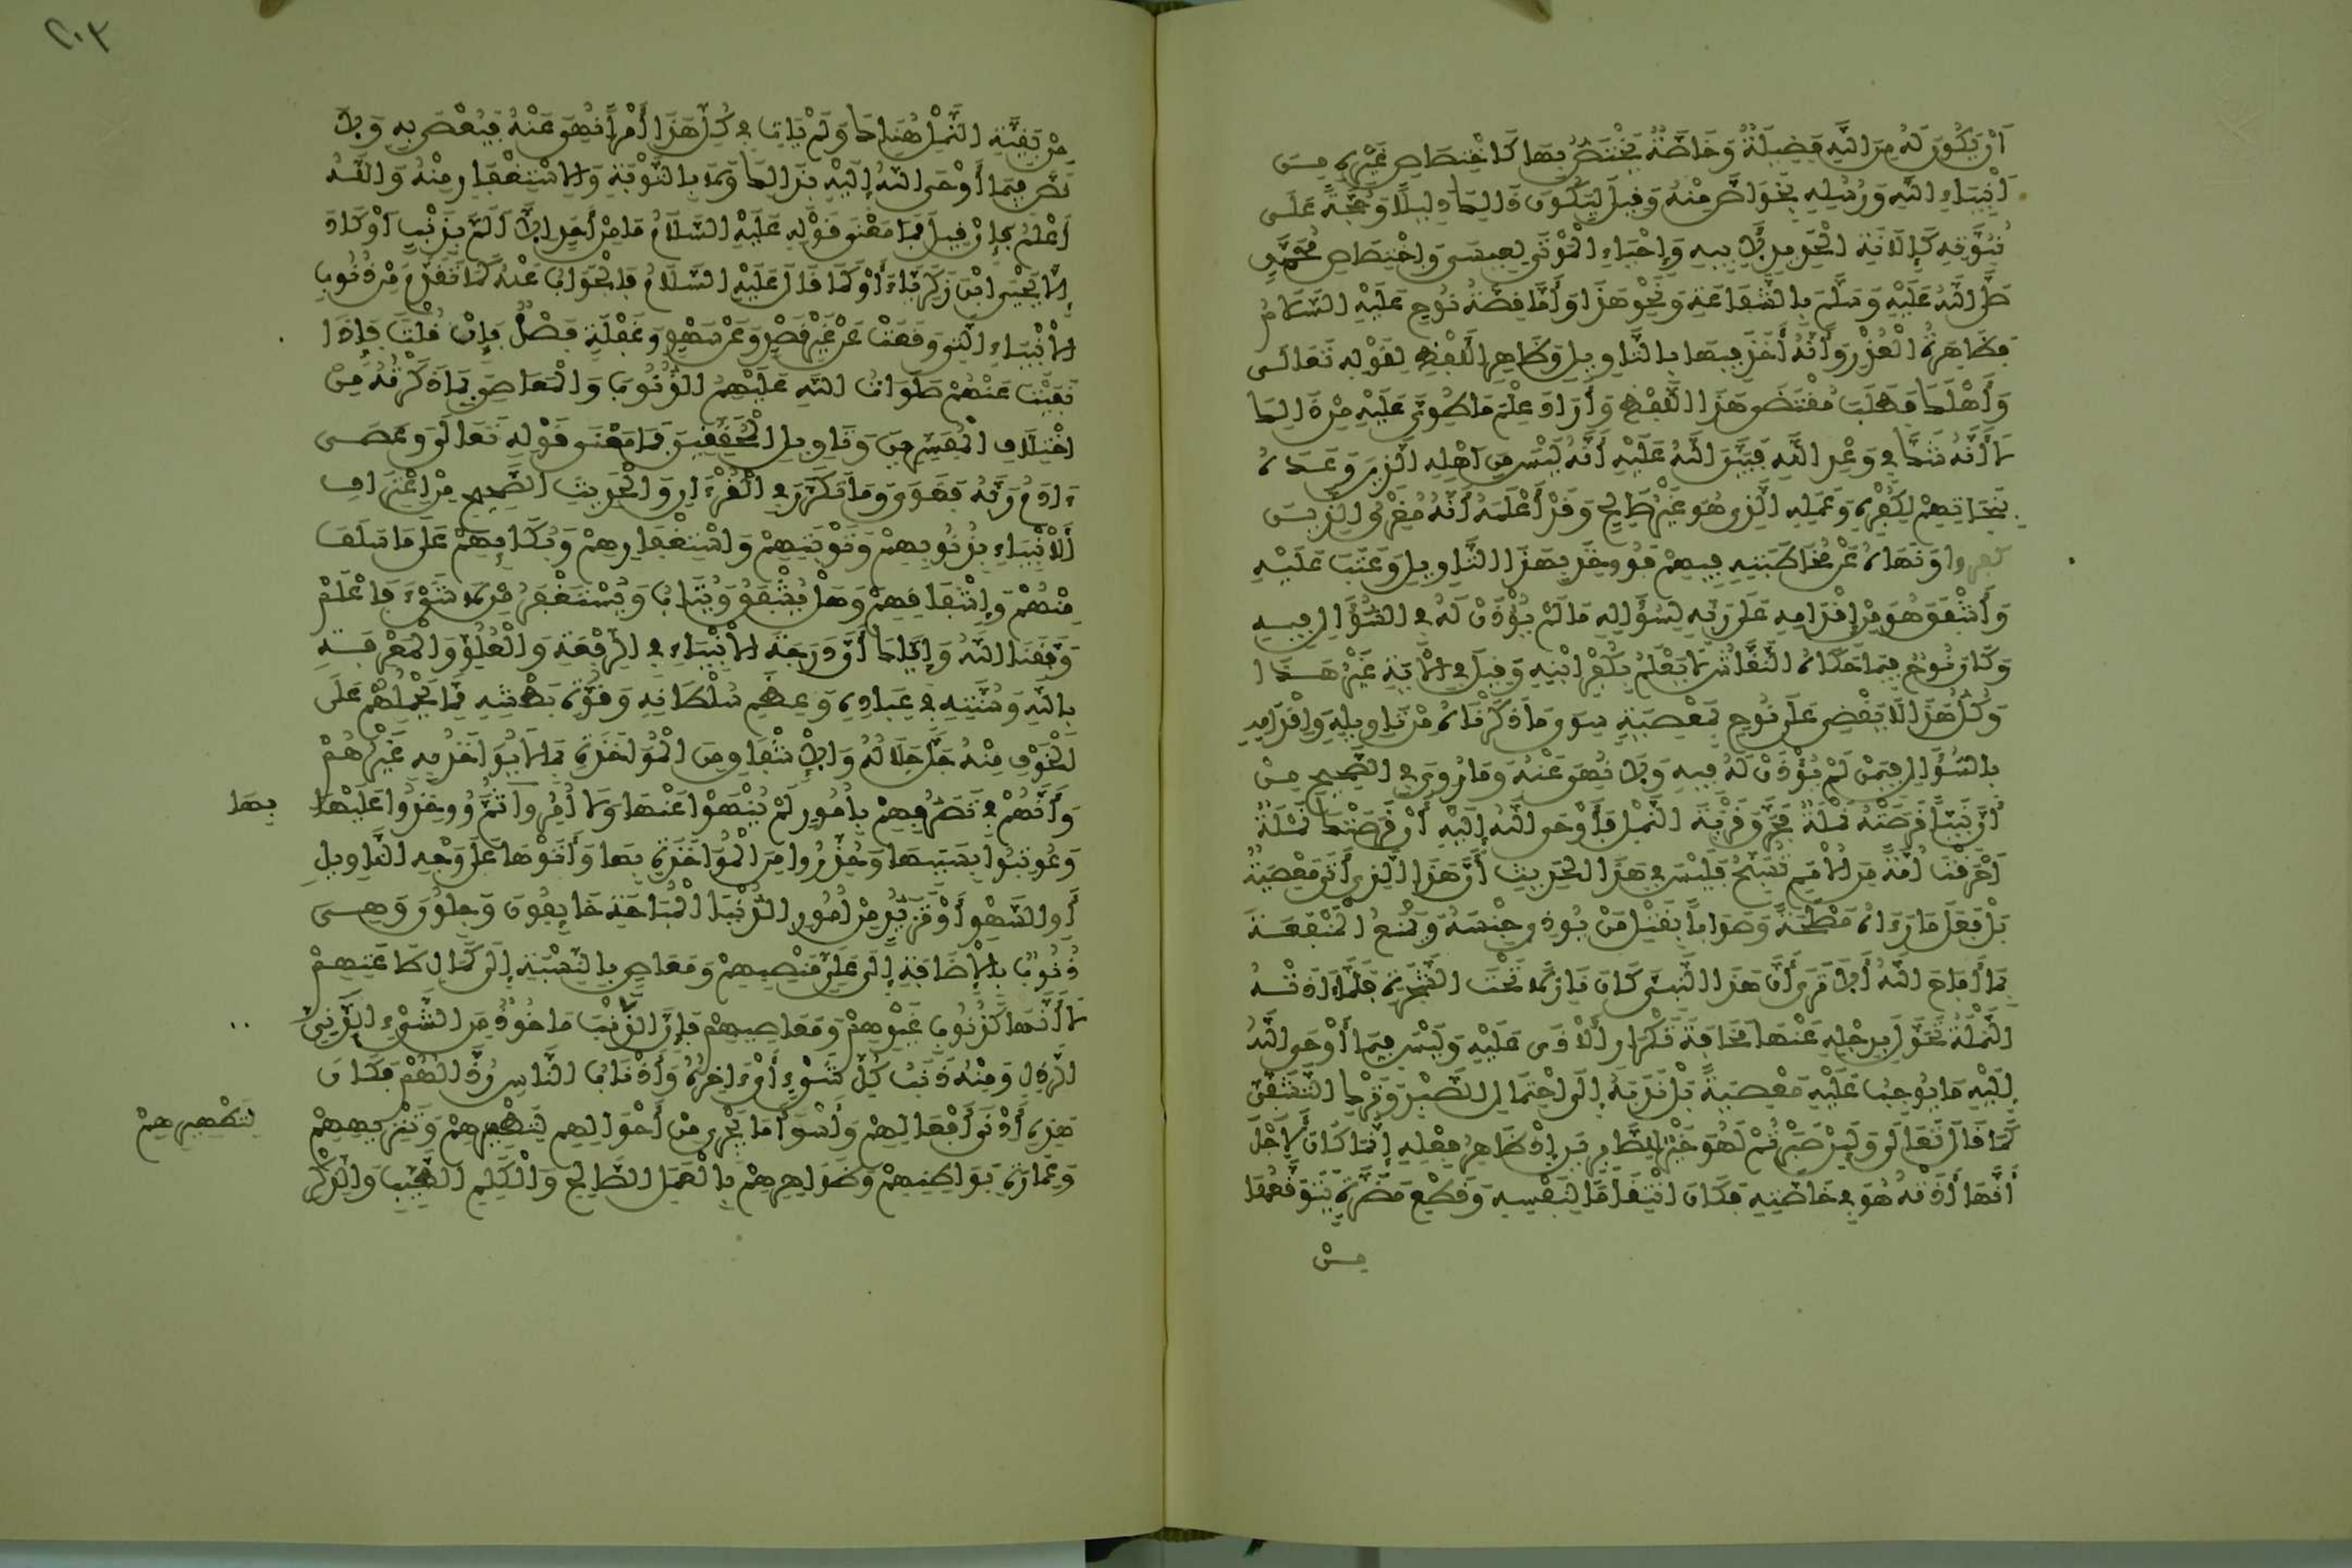 أَنْ يَكُونَ لَهُ مِنَ اللَّهِ فَضِيلَةٌ وَخَاصَّةٌ يَخْتَصُّ بِهَا كَاخْتِصَاصِ غَيْرِهِ مِنْ
أَنْبِيَاءِ اللَّهِ وَرُسُلِهِ بِخَوَاصَّ مِنْهُ وَقِيلَ لِيَكُونَ ذَالِكَ دَلِيلًا وَحُجَّةً عَلَى
نُبُوَّتِهِ كَإِلَانَةِ الْحَدِيدِ لِأَبِيهِ وَإِحْيَاءِ الْمَوْتَى لِعِيسَى وَاخْتِصَاصِ مُحَمَّدٍ
صَلَّى اللَّهُ عَلَيْهِ وَسَلَّمَ بِالشَّفَاعَةِ وَنَحْوِ هَذَا وَأَمَّا قِصَّةُ نُوحٍ عَلَيْهِ السَّلَامُ
فَظَاهِرَةُ الْعُذْرِ وَأَنَّهُ أَخَذَ فِيهَا بِالتَّاوِيلِ وَظَاهِرِ اللَّفْظِ لِقَوْلِهِ تَعَالَى
وَأَهْلَكَ فَطَلَبَ مُقْتَضَى هَذَا اللَّفْظِ وَأَرَادَ عِلْمَ مَا طُوِيَ عَلَيْهِ مِنْ ذَالِكَ
لَا أَنَّهُ شَكَّ فِي وَعْدِ اللَّهِ فَبَيَّنَ اللَّهُ عَلَيْهِ أَنَّهُ لَيْسَ مِنْ أَهْلِهِ الَّذِينَ وَعَدَهُ
بِنَجَاتِهِمْ لِكُفْرِهِ وَعَمَلِهِ الَّذِي هُوَ غَيْرُ صَالِحٍ وَقَدْ أَعْلَمَهُ أَنَّهُ مُغْرِقُ الَّذِينَ
كفروا وَنَهَاهُ عَنْ مُخَاطَبَتِهِ فِيهِمْ فَوُوخِذَ بِهَذَا التَّاوِيلِ وَعُتِبَ عَلَيْهِ
وَأَشْفَقَ هُوَ مِنْ إِقْدَامِهِ عَلَى رَبِّهِ لِسُؤَالِهِ مَا لَمْ يُؤْذَنْ لَهُ فِي السُّؤَالِ فِيهِ
وَكَانَ نُوحٌ فِيمَا حَكَاهُ النَّقَّاشُ لَا يَعْلَمُ بِكُفْرِ ابْنِهِ وَقِيلَ فِي الْآيَةِ غَيْرُ هَذَا
وَكُلُّ هَذَا لَا يَقْضِي عَلَى نُوحٍ بِمَعْصِيَةٍ سِوَى مَا ذَكَرْنَاهُ مِنْ تَاوِيلِهِ وَإِقْدَامِهِ
بِالسُّؤَالِ فِيمَنْ لَمْ يُؤْذَنْ لَهُ فِيهِ وَلَا نُهِيَ عَنْهُ وَمَا رُوِيَ فِي الصَّحِيحِ مِنْ
أَنَّ نَبِيًّا قَرَصَتْهُ نَمْلَةٌ فَحَرَّقَ قَرْيَةَ النَّمْلِ فَأَوْحَى اللَّهُ إِلَيْهِ أَنْ قَرَصَتْكَ نَمْلَةٌ
أَحْرَقْتَ أُمَّةً مِنَ الْأُمَمِ تُسَبِّحُ فَلَيْسَ فِي هَذَا الْحَدِيثِ أَنَّ هَذَا الَّذِي أَتَى مَعْصِيَةٌ
بَلْ فَعَلَ مَا رَءَاهُ مَصْلَحَةً وَصَوَابًا بِقَتْلِ مَنْ يُوذِي جِنْسُهُ وَيَمْنَعُ الْمَنْفَعَةَ
بِمَا أَبَاحَ اللَّهُ أَلَا تَرَى أَنَّ هَذَا النَّبِيَّ كَانَ نَازِلًا تَحْتَ الشَّجَرَةِ فَلَمَّا ءَاذَتْهُ
النَّمْلَةُ تَحَوَّلَ بِرَحْلِهِ عَنْهَا مَخَافَةَ تَكْرَارِ الْأَذَى عَلَيْهِ وَلَيْسَ فِيمَا أَوْحَى اللَّهُ
إِلَيْهِ مَا يُوجِبُ عَلَيْهِ مَعْصِيَةً بَلْ نَدَبَهُ إِلَى احْتِمَالِ الصَّبْرِ وَتَرْكِ التَّشَفِّي
كَمَا قَالَ تَعَالَى وَلَئِنْ صَبَرْتُمْ لَهُوَ خَيْرٌ لِلصَّابِرِينَ إِذْ ظَاهِرُ فِعْلِهِ إِنَّمَا كَانَ لِأَجْلِ
أَنَّهَا ءَاذَتْهُ هُوَ فِي خَاصَّتِهِ فَكَانَ انْتِقَامًا لِنَفْسِهِ وَقَطْعَ مَضَرَّةٍ يَتَوَقَّعُهَا
مِنْ
٢٠٣
مِنْ بَقِيَّةِ النَّمْلِ هُنَاكَ وَلَمْ يَاتِ فِي كُلِّ هَذَا أَمْرًا نُهِيَ عَنْهُ فَيُعْصَى بِهِ وَلَا
نَصَّ فِيمَا أَوْحَى اللَّهُ إِلَيْهِ بِذَالِكَ وَلَا بِالتَّوْبَةِ وَالِاسْتِغْفَارِ مِنْهُ وَاللَّهُ
أَعْلَمُ فَإِنْ قِيلَ فَمَا مَعْنَى قَوْلِهِ عَلَيْهِ السَّلَامُ مَا مِنْ أَحَدٍ إِلَّا أَلَمَّ بِذَنْبٍ أَوْ كَادَ
إِلَّا يَحْيَى ابْنَ زَكَرِيَّاءَ أَوْ كَمَا قَالَ عَلَيْهِ السَّلَامُ فَالْجَوَابُ عَنْهُ كَمَا تَقَدَّمَ مِنْ ذُنُوبِ
الْأَنْبِيَاءِ الَّتِي وَقَعَتْ عَنْ غَيْرِ قَصْدٍ وَعَنْ سَهْوٍ وَغَفْلَةٍ فَصْلٌ فَإِنْ قُلْتَ فَإِذَا
نَفَيْتَ عَنْهُمْ صَلَوَاتُ اللَّهِ عَلَيْهِمُ الذُّنُوبَ وَالْمَعَاصِيَ بِمَا ذَكَرْتَهُ مِنْ
اخْتِلَافِ الْمُفَسِّرِينَ وَتَاوِيلِ الْمُحَقِّقِينَ فَمَا مَعْنَى قَوْلِهِ تَعَالَى وَعَصَى
ءَادَمُ رَبَّهُ فَغَوَى وَمَا تَكَرَّرَ فِي الْقُرْءَانِ وَالْحَدِيثِ الصَّحِيحِ مِنِ اعْتِرَافِ
الْأَنْبِيَاءِ بِذُنُوبِهِمْ وَتَوْبَتِهِمْ وَاسْتِغْفَارِهِمْ وَبُكَائِهِمْ عَلَى مَا سَلَفَ
مِنْهُمْ وَإِشْفَاقِهِمْ وَهَلْ يُشْفَقُ وَيُتَابُ وَيُسْتَغْفَرُ مِنْ لَا شَيْءَ فَاعْلَمْ
وَفَّقَنَا اللَّهُ وَإِيَّاكَ أَنَّ دَرَجَةَ الْأَنْبِيَاءِ فِي الرِّفْعَةِ وَالْعُلُوِّ وَالْمَعْرِفَةِ
بِاللَّهِ وَسُنَّتِهِ فِي عِبَادِهِ وَعِظَمِ سُلْطَانِهِ وَقُوَّةِ بَطْشِهِ مِمَّا يَحْمِلُهُمْ عَلَى
الْخَوْفِ مِنْهُ جَلَّ جَلَالُهُ وَالْإِشْفَاقِ مِنَ الْمُؤَاخَذَةِ بِمَا لَا يُؤَاخَذُ بِهِ غَيْرُهُمْ
وَأَنَّهُمْ فِي تَصَرُّفِهِمْ بِأُمُورٍ لَمْ يُنْهَوْا عَنْهَا وَلَا أُمِرُوا ثُمَّ وُوخِذُوا عَلَيْهَا
بِهَا
وَعُوتِبُوا بِسَبَبِهَا وَحُذِّرُوا مِنَ الْمُؤَاخَذَةِ بِهَا وَأَتَوْهَا عَلَى وَجْهِ التَّاوِيلِ
أَوِ السَّهْوِ أَوْ تَزَيُّدٍ مِنْ أُمُورِ الدُّنْيَا الْمُبَاحَةِ خَايِفُونَ وَجِلُونَ وَهِيَ
ذُنُوبٌ بِالْإِضَافَةِ إِلَى عَلِيِّ مَنْصِبِهِمْ وَمَعَاصٍ بِالنِّسْبَةِ إِلَى كَمَالِ طَاعَتِهِمْ
لَا أَنَّهَا كَذُنُوبِ غَيْرِهِمْ وَمَعَاصِيهِمْ فَإِنَّ الذَّنْبَ مَاخُوذٌ مِنَ الشَّيْءِ الدَّنِيِّ
الرَّذِلِ وَمِنْهُ ذَنَبُ كُلِّ شَيْءٍ أَيْ ءَاخِرُهُ وَأَذْنَابُ النَّاسِ رُذَّالُهُمْ فَكَانَ
هَذِهِ أَدْنَى أَفْعَالِهِمْ وَأَسْوَأَ مَا يَجْرِي مِنْ أَحْوَالِهِمْ لِتَطْهِيرِهِمْ وَتَنْزِيهِهِمْ
لِتَطْهِيرِهِمْ
وَعِمَارَةِ بَوَاطِنِهِمْ وَظَوَاهِرِهِمْ بِالْعَمَلِ الصَّالِحِ وَالْكَلِمِ الطَّيِّبِ وَالذِّكْرِ